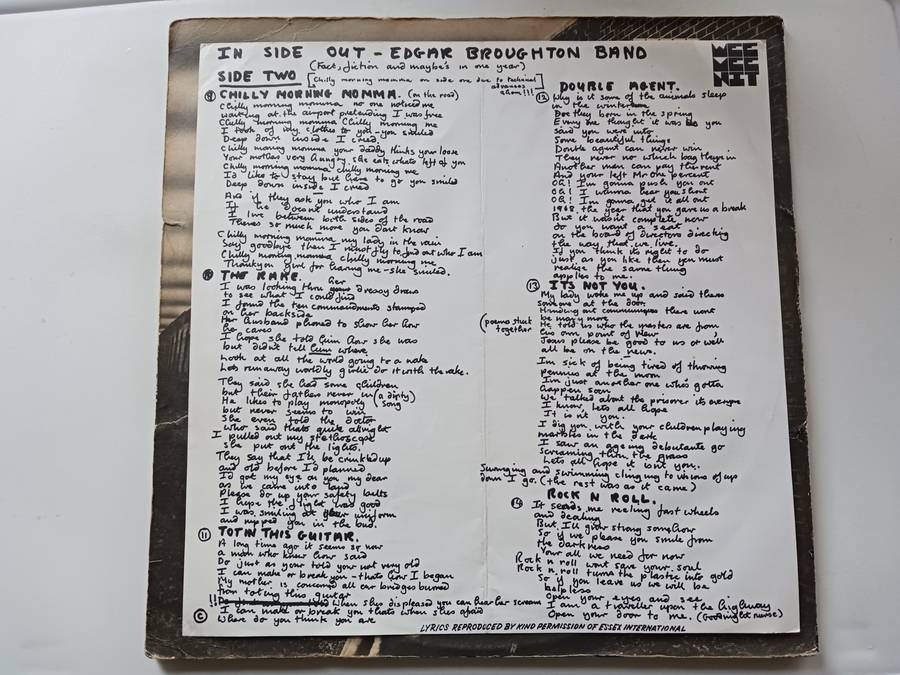 IN SIDE OUT - EDGAR BROUGHTON BAND
(Fact, fiction and maybe's in one year)
SIDE TWO [Chilly morning momma on side one due to technical
advances
ahem!!!]
⑨ CHILLY MORNING MOMMA. (on the road)
Chilly morning momma no one noticed me
waiting at the airport pretending I was free
Chilly morning momma Chilly morning me
I took of my clothes to you - you smiled
Deep down inside I cried.
Chilly morning momma your daddy thinks your loose
Your mothers very hungry she eats whats left of you
Chilly morning momma chilly morning me
I'd like to stay but have to go you smiled
Deep down inside I cried
And if they ask you who I am
It doesnt understand
I live between both sides of the road
Theres so much more you dont know
Chilly morning momma my lady in the rain
Say goodbye then I might fly to find out who I am
Chilly morning momma chilly morning me
Thankyou girl for having me - she smiled.
⑩ THE RAKE.
I was looking thru her dressy draws
to see what I could find
I found the ten commandments stamped
on her backside
Her husband phoned to show her how
he cares
I hope she told him how she was
but didn't tell him where.
Look at all the world going to a rake
Lets runaway worldly girlie do it with the rake.
They said she had some children
but their fathers never in (a dirty)
He likes to play monopoly (song
but never seems to win
She even told the doctor
who said thats quite alright
I pulled out my stethoscope
She put out the lights.
They say that I'll be crinkled up
and old before I'd planned
I'd got my eye on you my dear
as we came into land
Please do up your safety belts
I hope the flight was good
I was smiling at your uniform
and nipped you in the bud.
⑪ TOTIN THIS GUITAR.
A long time ago it seems so now
a man who knew how said
Do just as your told your not very old
I can make or break you - thats how I began
My mother is concerned all our bridges burned
from toting this guitar
!! when shes displeased you can hear her scream
I can make or break you thats when shes afraid
Where do you think you are
DOUBLE AGENT.
⑫ Why is it some of the animals sleep
in the winter
Are they born in the spring
Every one thought it was you
said you were into
Some beautiful things
Double agent can never win
They never no which bag theyre in
Another man can pay the rent
And your left Mr one percent
Oh! I'm gonna push you out
Oh! I wanna hear you shout
Oh! I'm gonna get it all out
1968 the year that you gave us a break
But it wasnt complete now
do you want a seat
on the board of directors directing
the way that we live.
If you think its right to do
just as you like then you must
realise the same thing
applies to me.
⑬ ITS NOT YOU.
My lady woke me up and said theres
someone at the door
Handing out communiques there wont
be many more
(poems stuck
together)
He told us who the masters are from
his own point of view
Jesus please be good to us or well
all be on the news.
Im sick of being tired of throwing
pennies at the moon
Im just another one who's gotta
happen soon
We talked about the prisoner its everyone
I know, lets all hope
It is nt you.
I dig you, with your children playing
marbles in the dark
I saw an ageing debutante go
screaming thru the grass
Lets all hope it isnt you.
Swinging and swimming clinging to visions of us
down I go. (the rest was as it came)
ROCK N ROLL.
⑭ It sends me reeling fast wheels
and dealing
But I'll grow strong somehow
So if we please you smile from
the darkness
Your all we need for now
Rock n roll wont save your soul
Rock n roll turns the plaster into gold
So if you leave us we will be
helpless
Open your eyes and see
I am a traveller upon the highway
Open your door to me. (Goodnight nurse)
©
LYRICS REPRODUCED BY KIND PERMISSION OF ESSEX INTERNATIONAL